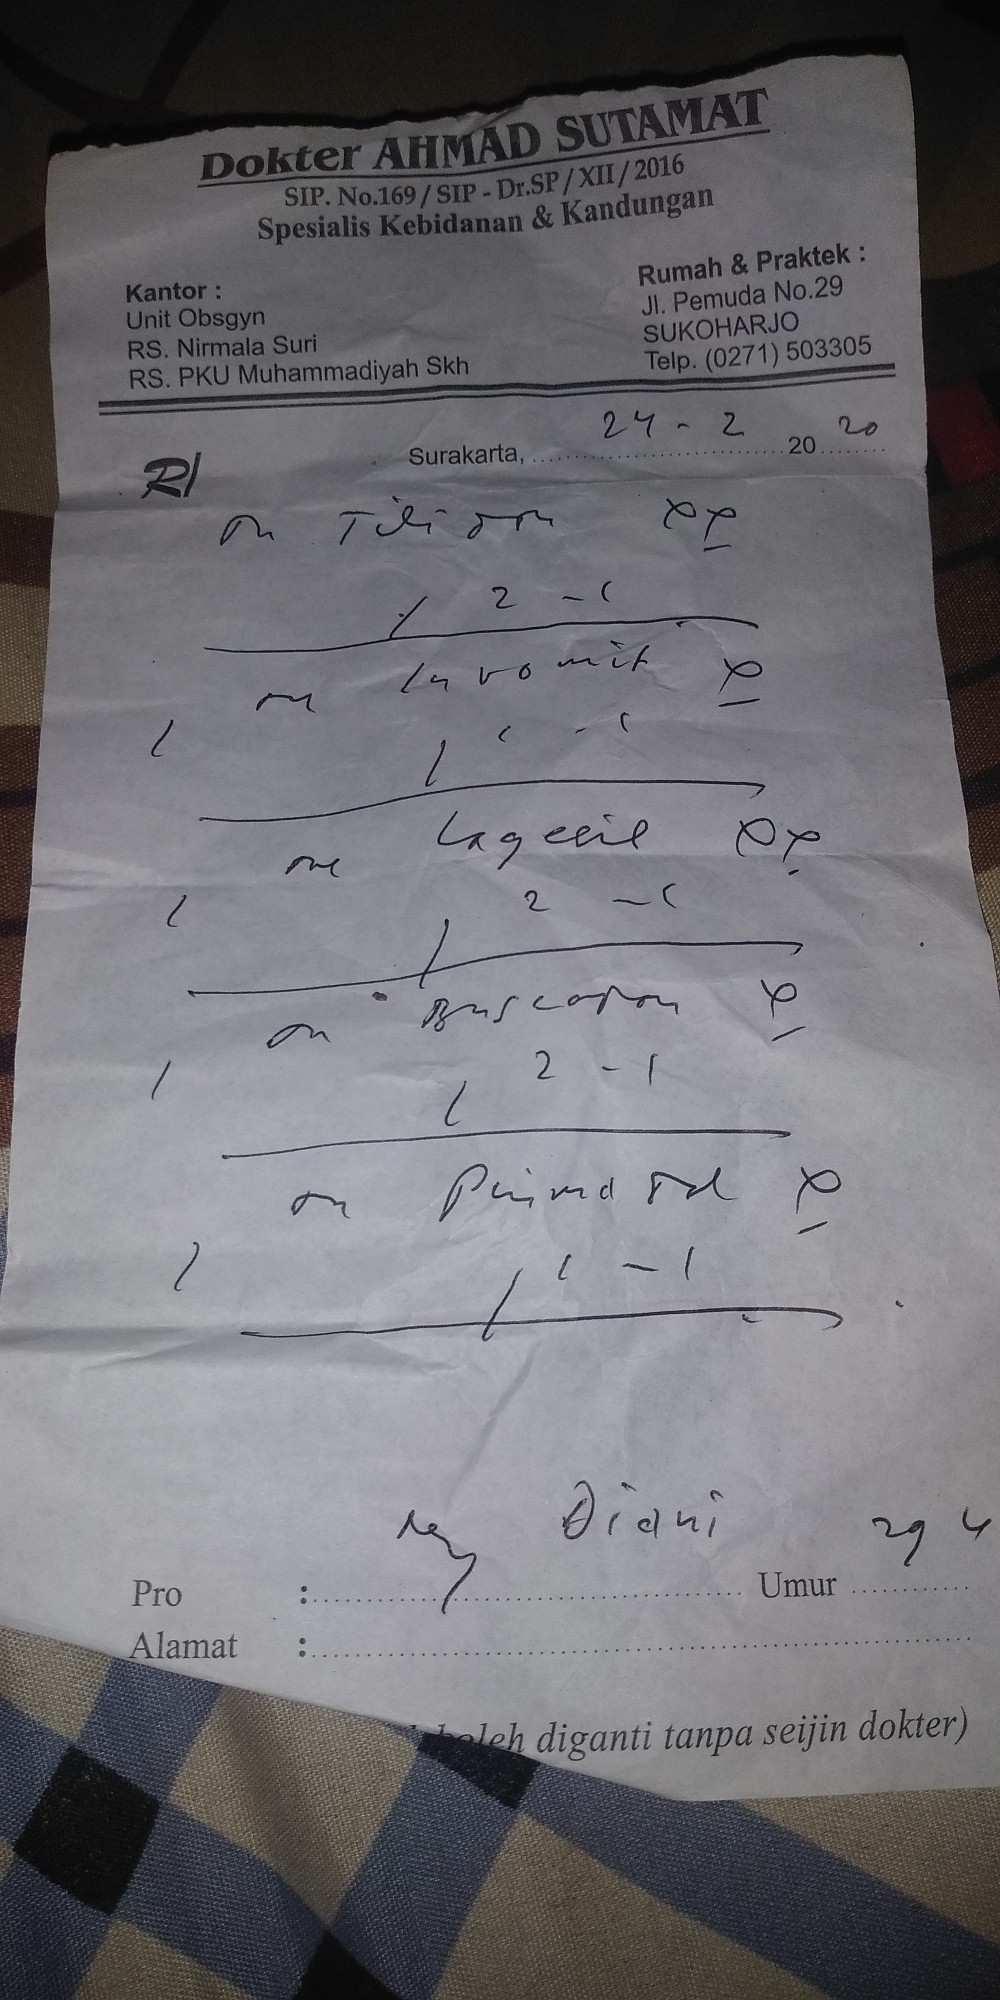 Dokter AHMAD SUTAMAT
SIP. No.169 / SIP - Dr.SP / XII / 2016
Spesialis Kebidanan & Kandungan
Kantor :
Unit Obsgyn
RS. Nirmala Suri
RS. PKU Muhammadiyah Skh
Rumah & Praktek :
Jl. Pemuda No.29
SUKOHARJO
Telp. (0271) 503305
Surakarta, 24 - 2 20 20
R/
Tilidon XX
2 - 1
Invomit X
1 - 1
Lagesil XX
2 - 1
Buscopan X
2 - 1
X
1 - 1
Pro : Ny Diani Umur 29
Alamat :
boleh diganti tanpa seijin dokter)